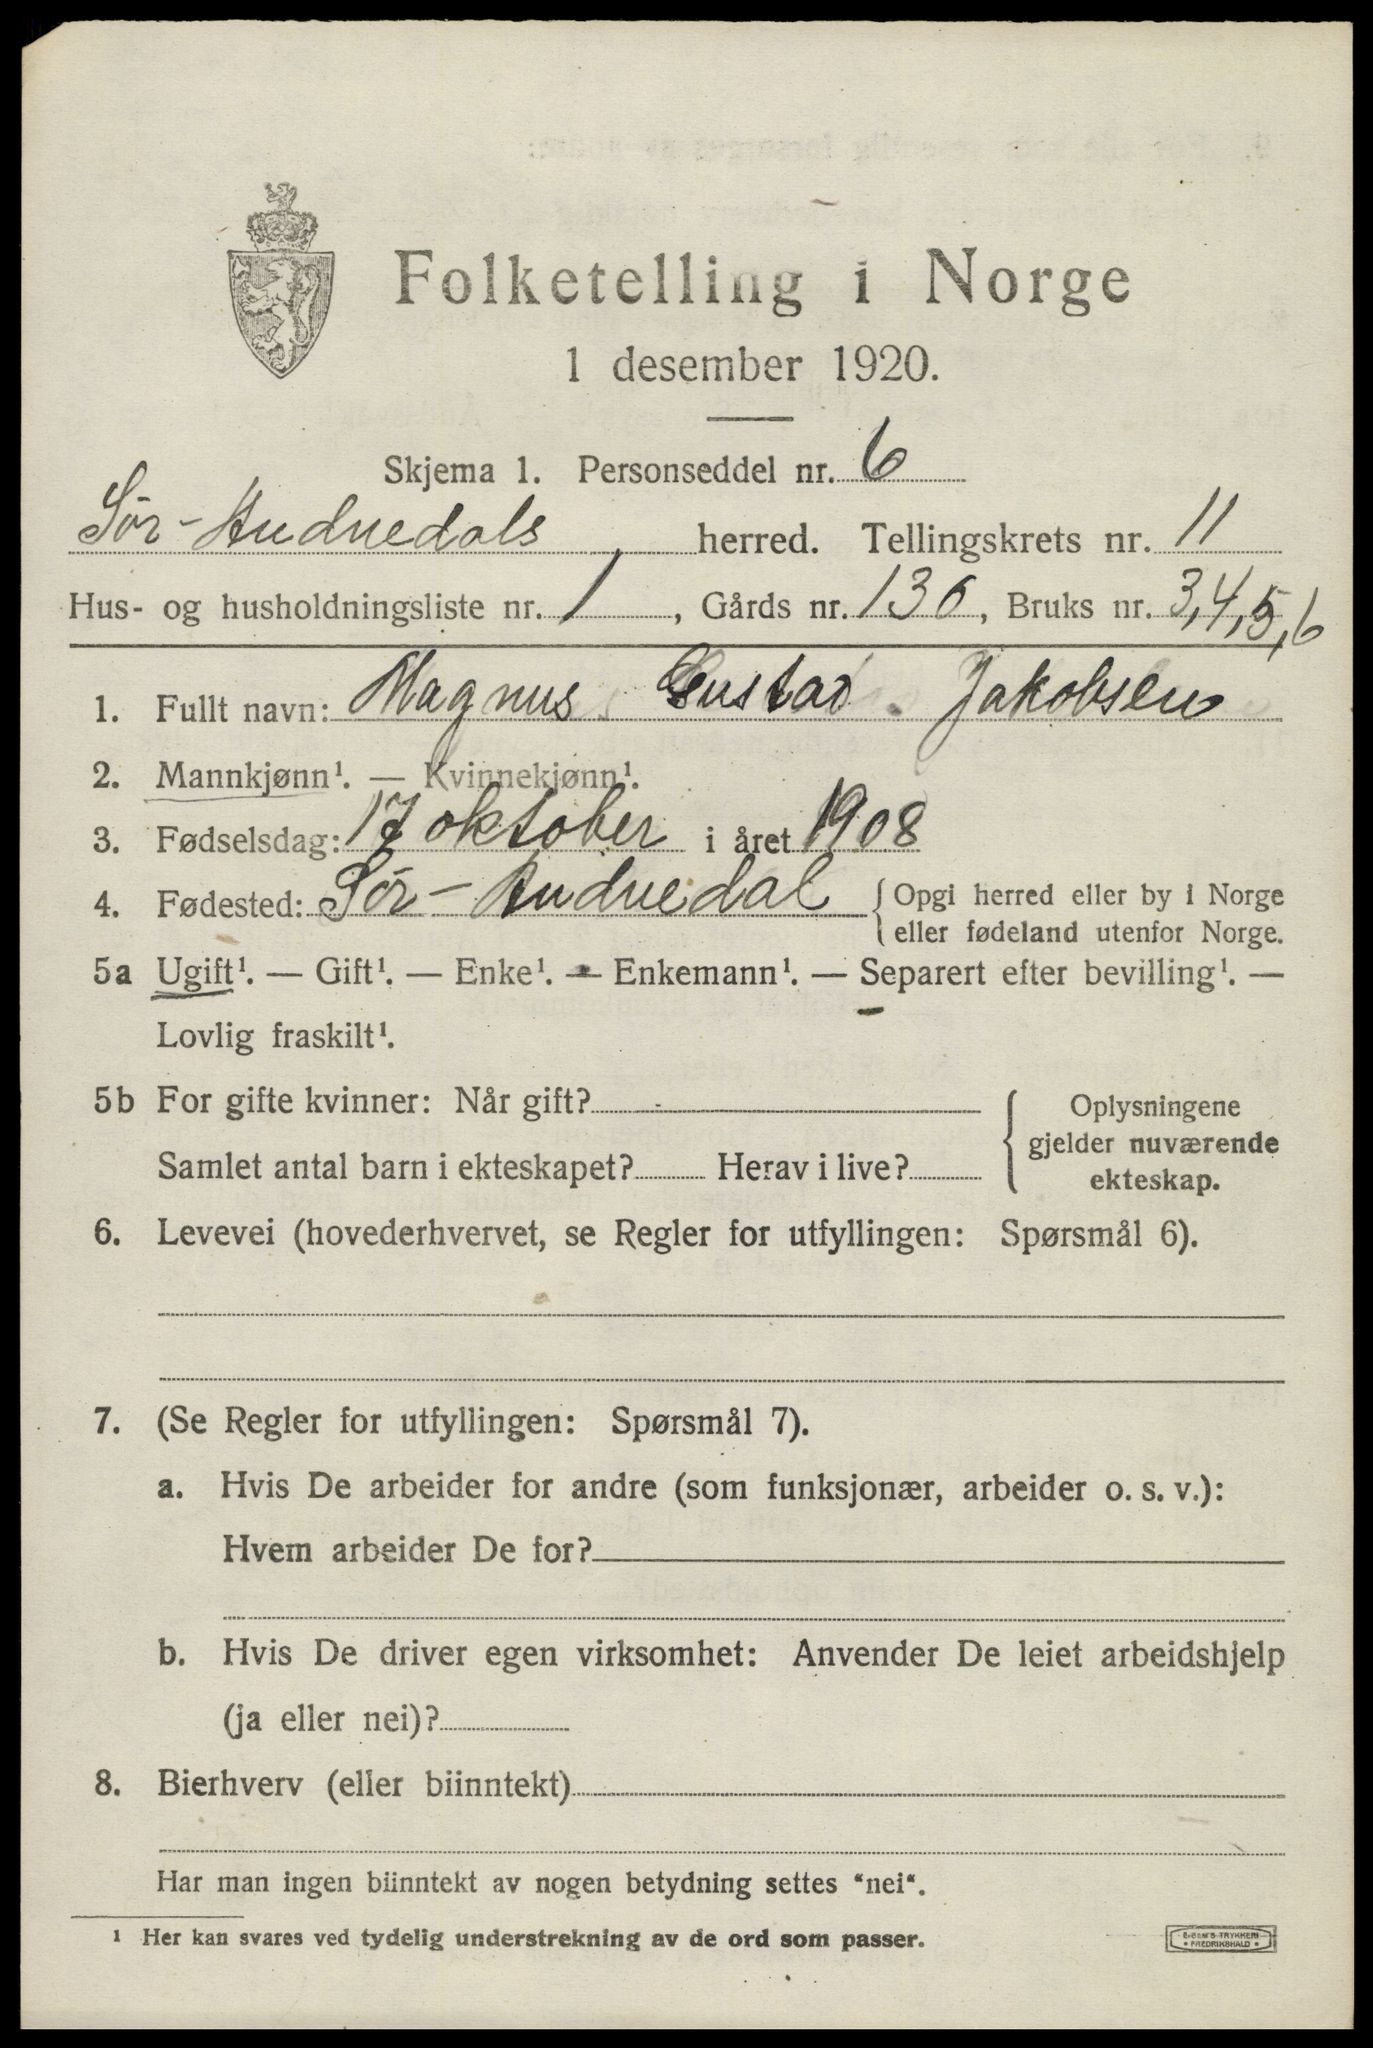 Folketelling i Norge
1 desember 1920.
Skjema 1. Personseddel nr. 6
Sør-Audnedals herred. Tellingskrets nr. 11
Hus- og husholdningsliste nr. 1, Gårds nr. 136, Bruks nr. 3,4,5,6
1. Fullt navn: Magnus Gustav Jakobsen
2. Mannkjønn¹. — Kvinnekjønn¹.
3. Fødselsdag: 17 oktober i året 1908
4. Fødested: Sør-Audnedal { Opgi herred eller by i Norge
eller fødeland utenfor Norge.
5a Ugift¹. — Gift¹. — Enke¹. — Enkemann¹. — Separert efter bevilling¹. —
Lovlig fraskilt¹.
5b For gifte kvinner: Når gift?
Samlet antal barn i ekteskapet? Herav i live?
{ Oplysningene
gjelder nuværende
ekteskap.
6. Levevei (hovederhvervet, se Regler for utfyllingen: Spørsmål 6).
7. (Se Regler for utfyllingen: Spørsmål 7).
a. Hvis De arbeider for andre (som funksjonær, arbeider o. s. v.):
Hvem arbeider De for?
b. Hvis De driver egen virksomhet: Anvender De leiet arbeidshjelp
(ja eller nei)?
8. Bierhverv (eller biinntekt)
Har man ingen biinntekt av nogen betydning settes "nei".
¹ Her kan svares ved tydelig understrekning av de ord som passer.
TRYKKERI
FREDRIKSHALD